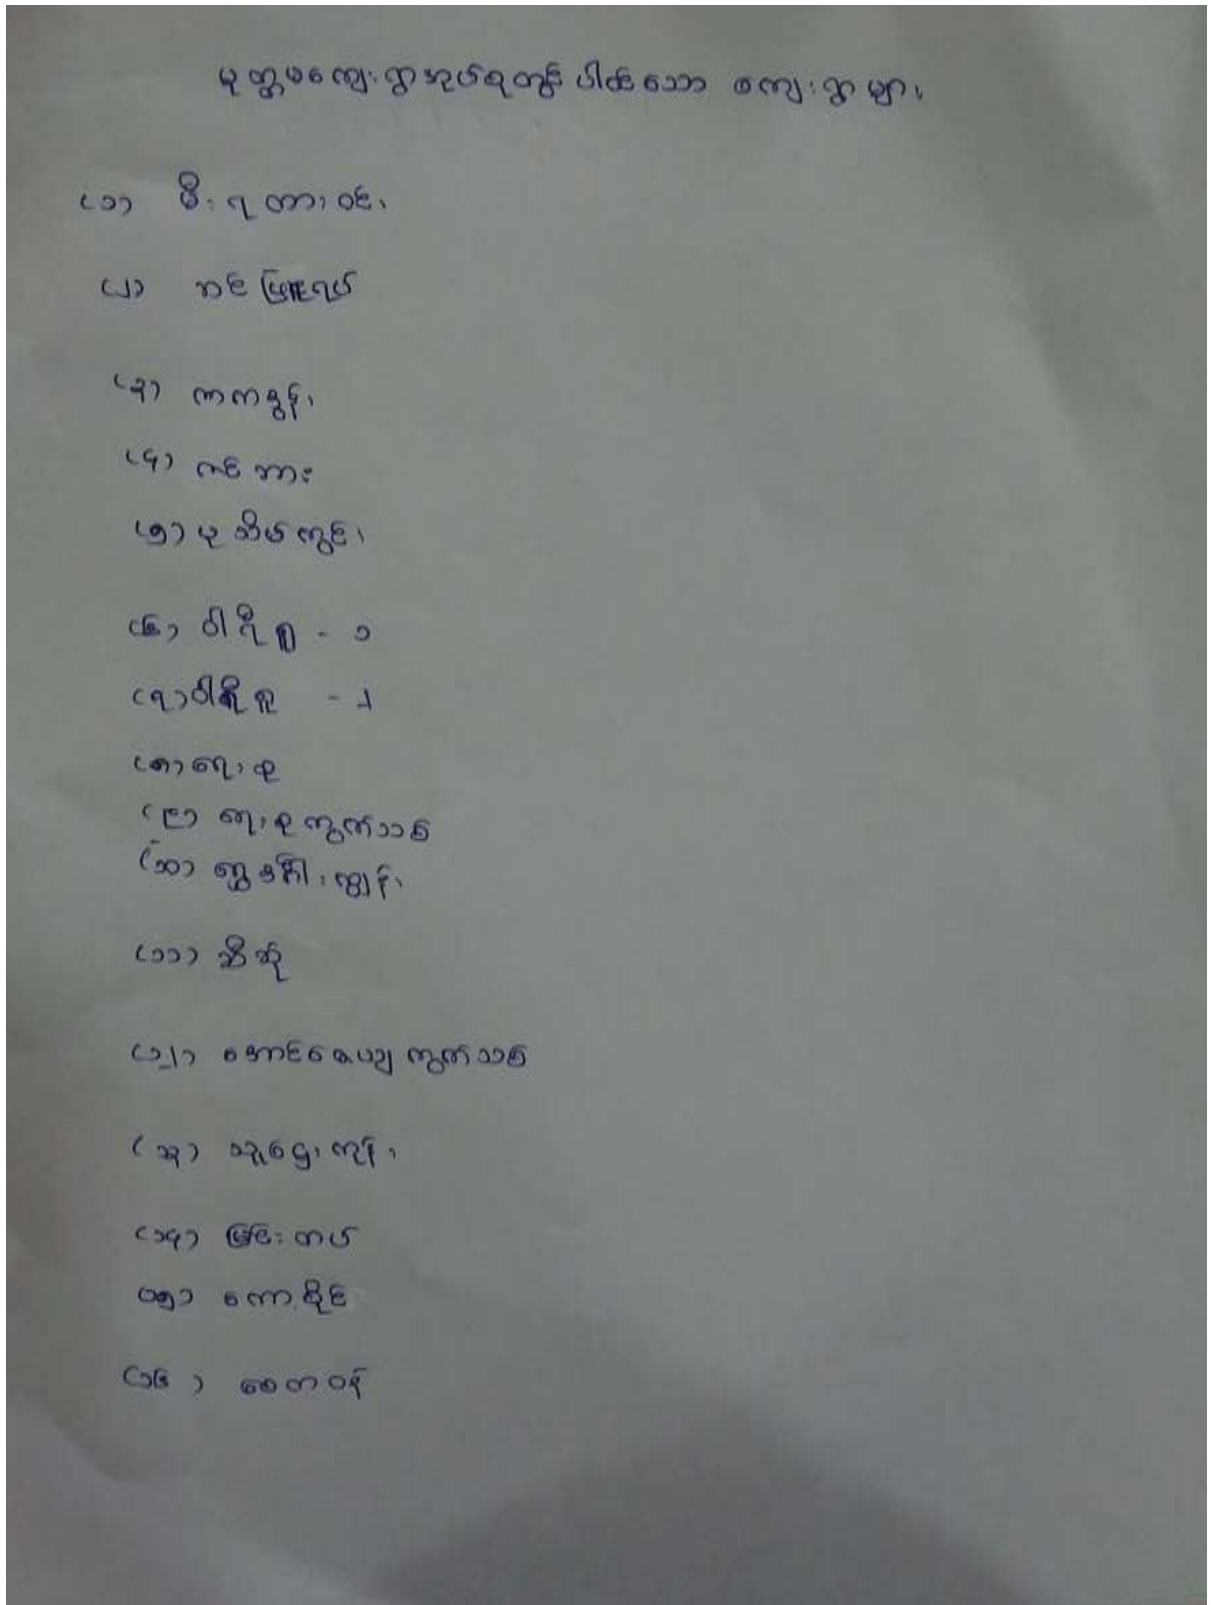 မုတ္တမကျေးရွာအုပ်စုတွင် ပါဝင်သော ကျေးရွာများ
(၁) မီးရထားဝင်း
(၂) ဆင်ဖြူရပ်
(၃) ကကစွန်း
(၄) ကင်းဘား
(၅) မုသိမ်ကွင်း
(၆) ဝါရီရူ - ၁
(၇) ဝါရီရူ - ၂
(၈) ရေးစု
(၉) ရေးစုကွက်သစ်
(၁၀) ရွှေဒင်္ဂါးကျွန်း
(၁၁) ဆီဆုံ
(၁၂) အောင်ဇေယျကွက်သစ်
(၁၃) သူဌေးကုန်း
(၁၄) မြင်းကပ်
(၁၅) ကော့စိုင်
(၁၆) ဇေတဝန်